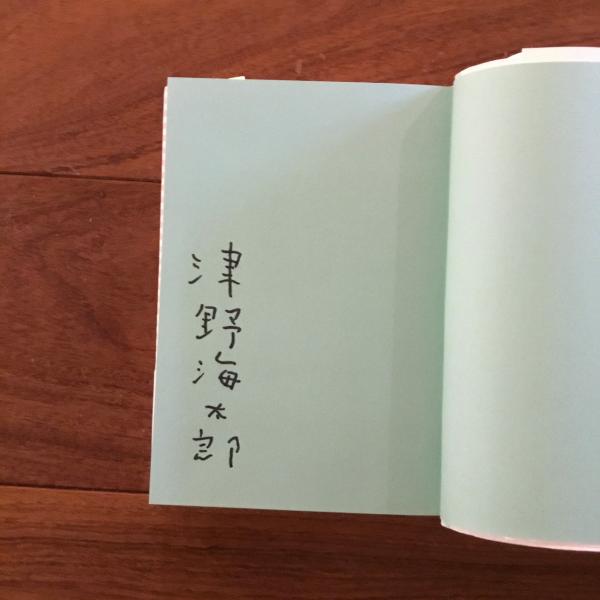 津野海太郎